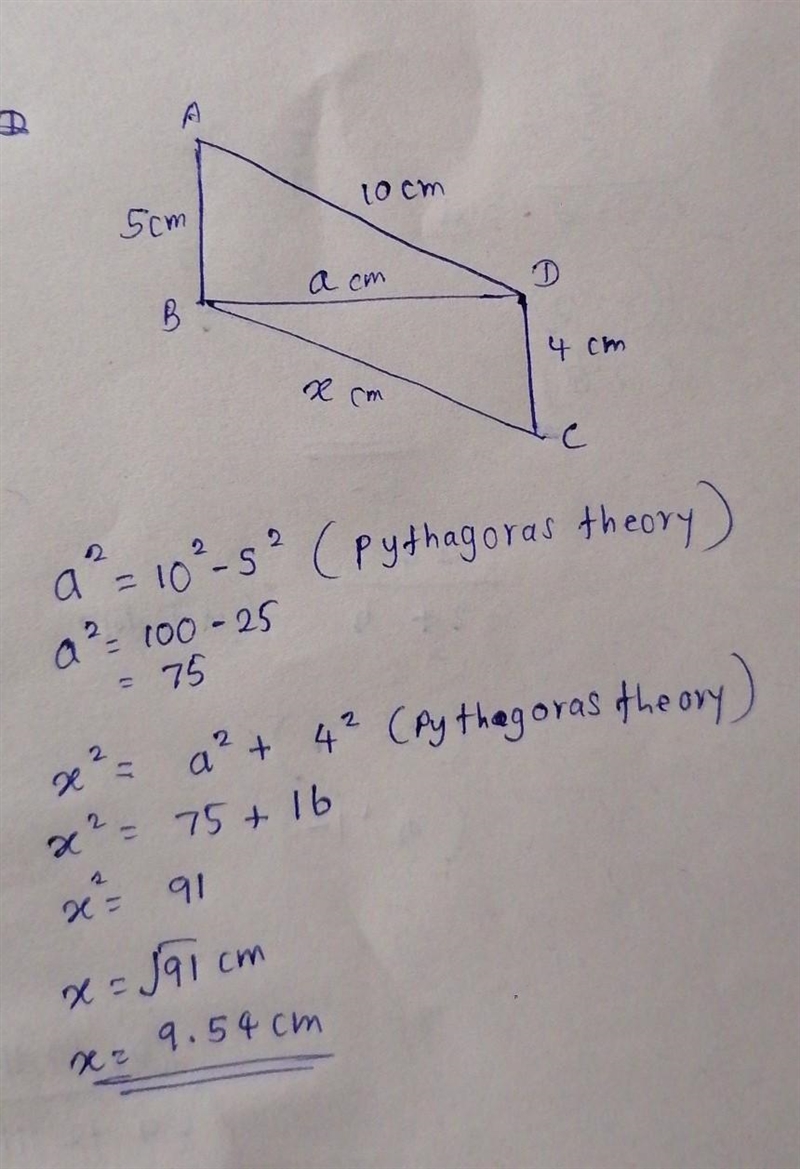 A
10 cm
5cm
a cm
D
B
4 cm
x cm
C
a² = 10² - 5² (pythagoras theory)
a² = 100 - 25
= 75
x² = a² + 4² (pythagoras theory)
x² = 75 + 16
x² = 91
x = √91 cm
x = 9.54 cm